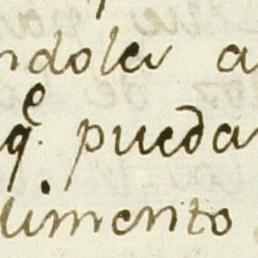 ndola a
q^e pueda
limento